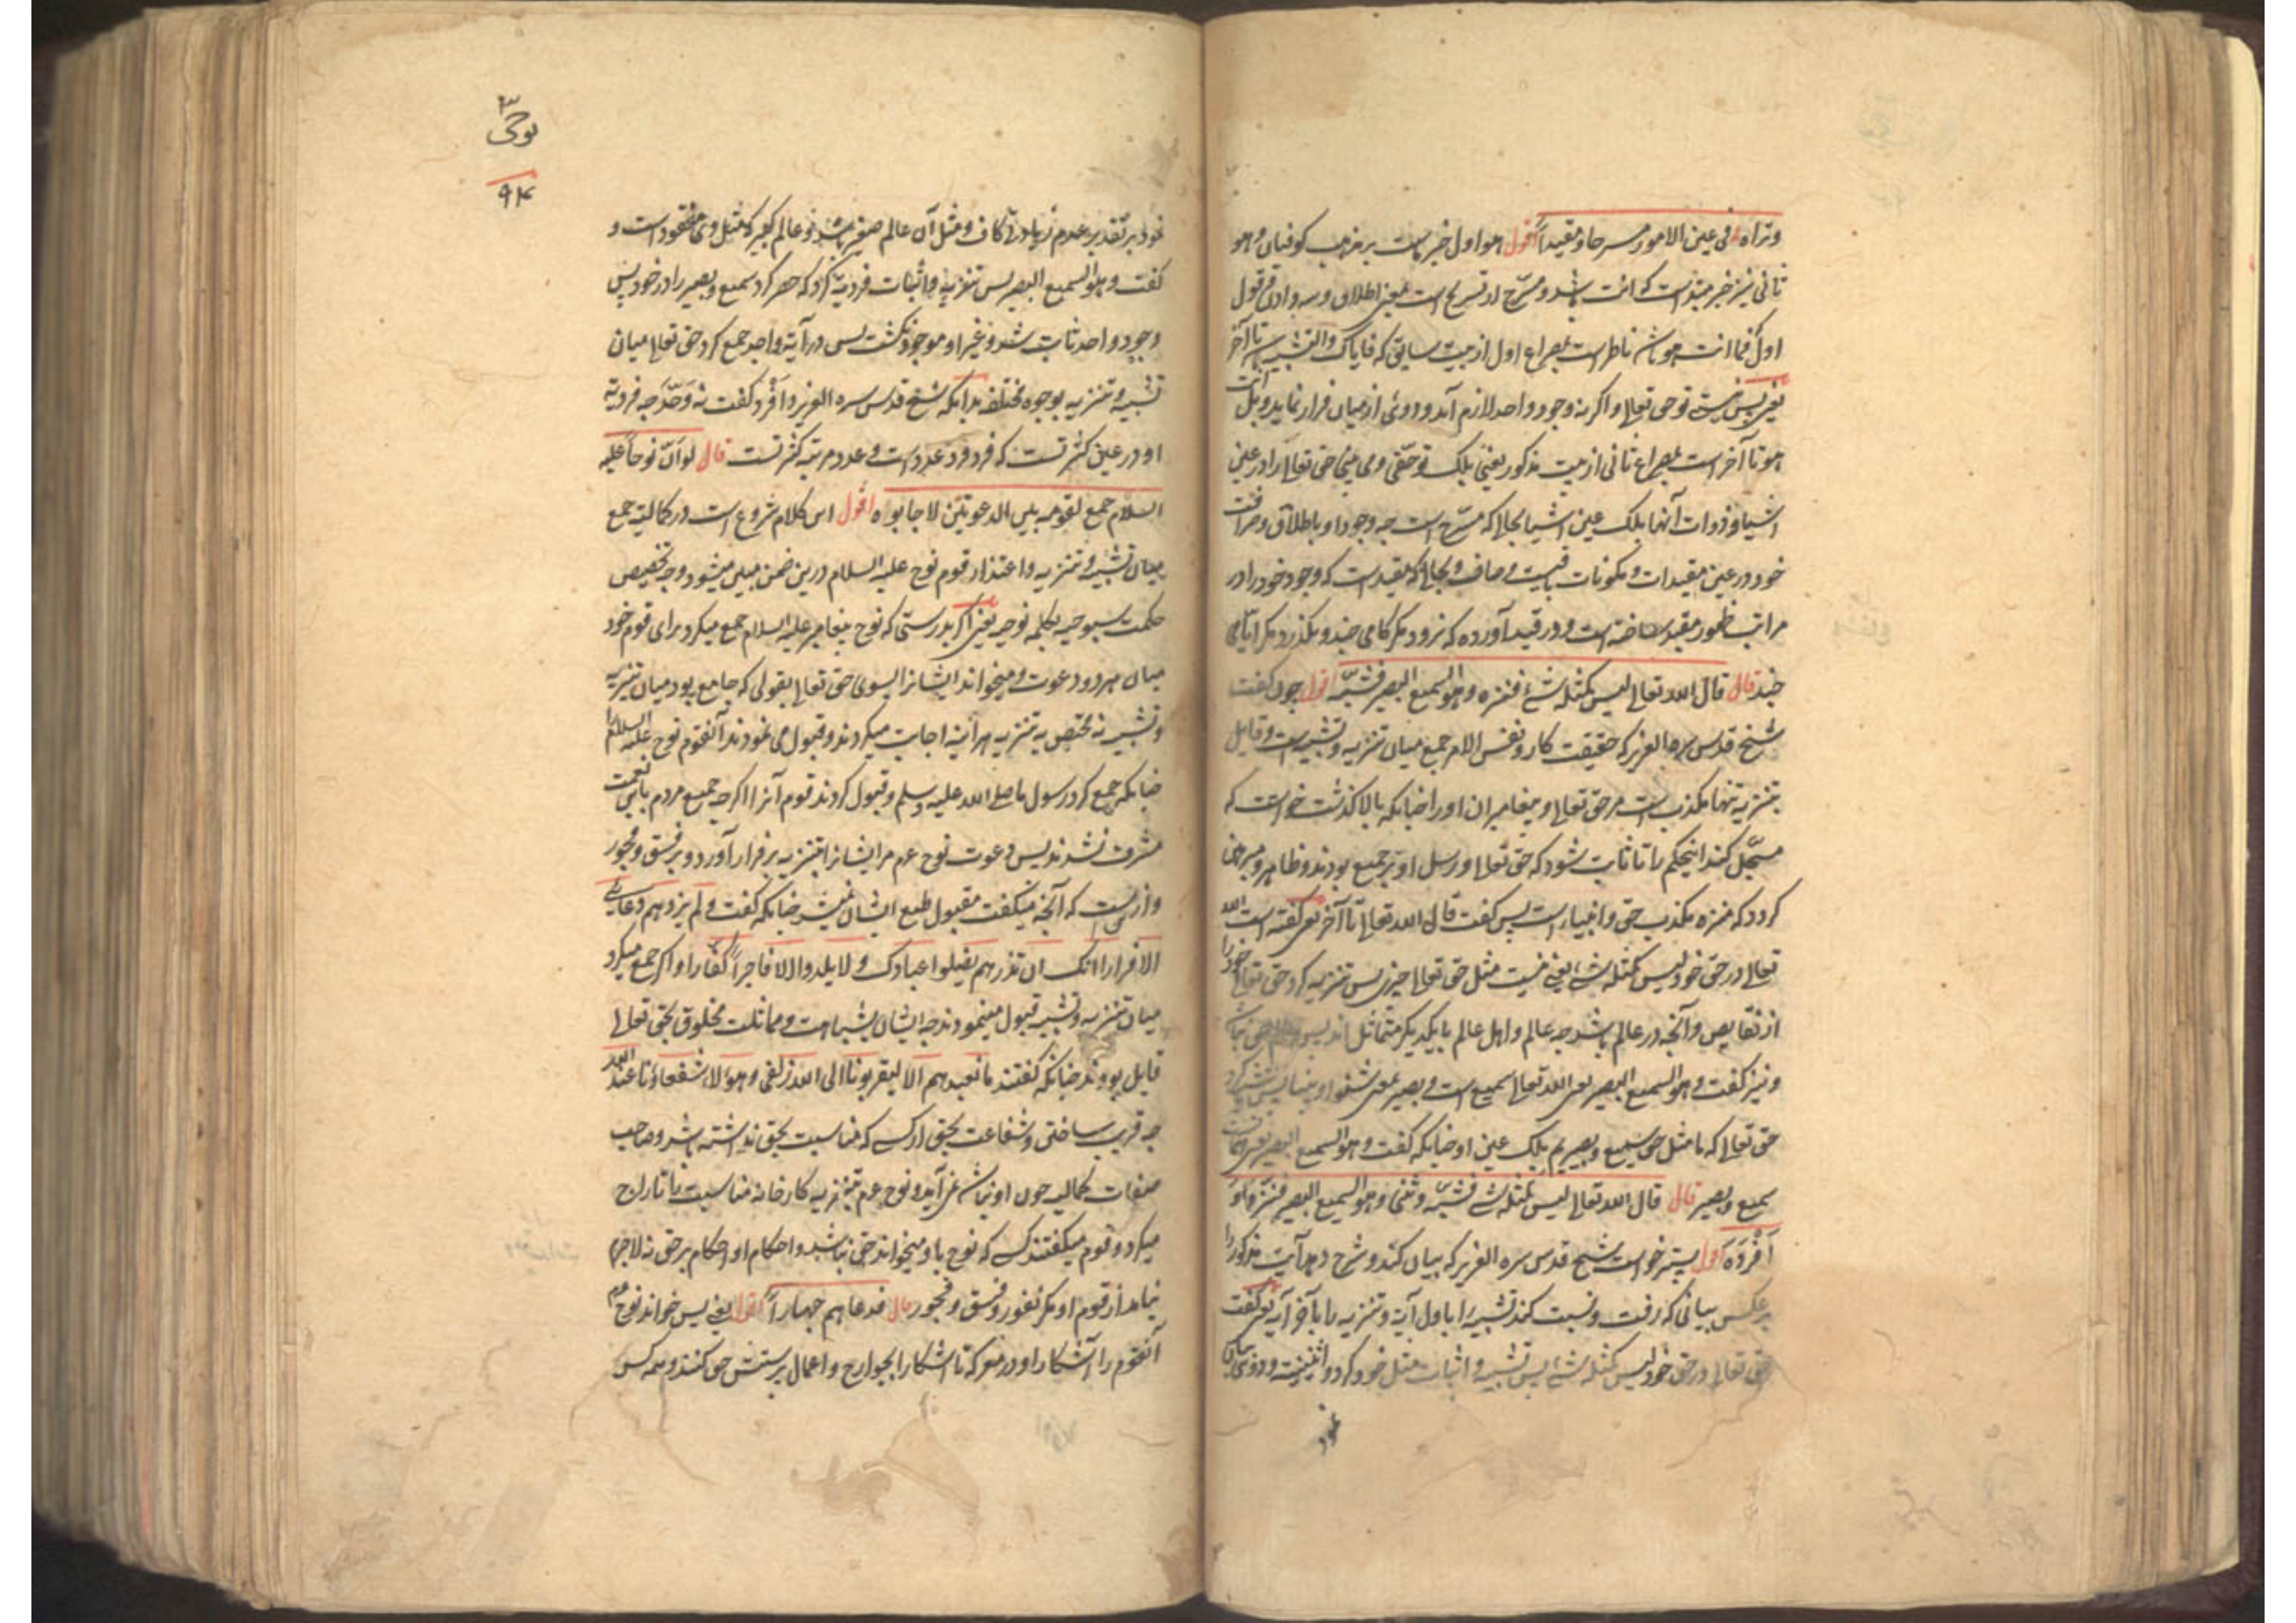 وتراه فی عین الامور مسرحا ومقیداً اقول هو اول خبر مات بر مذهب کوفیان و هو
ثانی نیز خبر مبتداست که انت باشد و مسرّح از تسریح است بمعنی اطلاق و سه وادی قول
اول فما انت هو تا ناظر است بمصراع اول از بیت سابق که فایاک والتشبیه تا آخر
یعنی پس نیستی تو حق تعالی واکر نه وجود واحد لازم آید و دوئی از میان فرار نماید و بل انت
هو تا آخر است بمصراع ثانی از بیت مذکور یعنی بلکه تو حقی و می بینی حق تعالی را در عین
اشیا و ذوات آنها بلکه عین اشیا بحالی که مسرّح است چه وجود او باطلاق وصرافت
خود در عین مقیدات و مکونات باقیست و صاف و بحالی که مقید است که وجود خود را در
مراتب ظهور مقید ساخته است و در قید آورده که نرود مکر کامی چند و نکذرد مکر ایامی
چند قال قال الله تعالی لیس کمثله شئ فنزه وهو السمیع البصیر فشبّه اقول چون کفت
شیخ قدس سره العزیز که حقیقت کار و نفس الامر جمع میان تنزیه و تشبیه است و قایل
بتنزیه تنها مکذب است مر حق تعالی و پیغامبران او را چنانکه بالا کذشت خواست که
مسجّل کند اینحکم را تا ثابت شود که حق تعالی و رسل او بر جمیع بودند و ظاهر و مبرهن
کردد که منزه مکذب حق و انبیا است پس کفت قال الله تعالی تا آخر یعنی کفته است الله
تعالی در حق خود لیس کمثله شئ یعنی نیست مثل حق تعالی چیزی پس تنزیه کرد حق تعالی خود را
از نقایص و آنچه در عالم باشد چه عالم و اهل عالم با یکدیکر متماثل اند پس
و نیز کفت وهو السمیع البصیر یعنی الله تعالی سمیع است و بصیر یعنی شنوا و بینا پس تشبیه کرد
حق تعالی که ما مثل حق سمیع و بصیریم بلکه عین او چنانکه کفت وهو السمیع البصیر یعنی
سمیع و بصیر قال قال الله تعالی لیس کمثله شئ فشبّه وثنی وهو السمیع البصیر فنزّه و
اَفْرَدَ اقول پستر خواست شیخ قدس سره العزیز که بیان کند و شرح دهد آیت مذکور را
بر عکس بیانی که رفت و نسبت کند تشبیه را باول آیة و تنزیه را بآخر آیه یعنی کفت
حق تعالی در حق خود لیس کمثله شئ پس تشبیه و اثبات مثل خود کرد و اثنینیت و دوئی
نمود
نوحی
۹۴
نمود بر تقدیر عدم زیادتی کاف و مثل آن عالم صغیر باشد نه عالم کبیر که مثل وی مفقود است و
کفت وهو السمیع البصیر پس تنزیه و اثبات فردیة کرد که حصر کرد سمیع و بصیر را در خود پس
وجود واحد ثابت شد و غیر او موجود نکشت پس در آیة واحد جمع کرد حق تعالی میان
تشبیه و تنزیه بوجوه مختلفه بدانکه شیخ قدس سره العزیز و اَفْرَد کفت نه وَحَّدَ چه فردیة
او در عین کثرتست که فرد فرد عدد است و عدد مرتبه کثرتست قال لو ان نوحاً علیه
السلام جمع لقومه بین الدعوتین لاجابوه اقول این کلام شروع است در کمالیة جمع
میان تشبیه و تنزیه و اعتذار قوم نوح علیه السلام درین ضمن مبین میشود وجه تخصیص
حکمت سبوحیه بکلمه نوحیه یعنی اکر بدرستی که نوح پیغامبر علیه السلام جمع میکرد برای قوم خود
میان هر دو دعوت و میخواند ایشانرا بسوی حق تعالی بقولی که جامع بود میان تنزیه
و تشبیه نه مختص به تنزیه هر آینه اجابت میکردند و قبول می نمودند آنقوم نوح علیه السلام را
چنانکه جمع کرد رسول ما صلی الله علیه وسلم و قبول کردند قوم آنرا اکرچه جمیع مردم باین نعمت
مشرف نشدند پس دعوت نوح عم مر ایشانرا بتنزیه بر فرار آورد و بر فسق و فجور
و ازینست که آنچه میکفت مقبول طبع ایشان نمیشد چنانکه کفت ولم یزدهم دعائی
الا فرارا انک ان تذرهم یضلوا عبادک ولا یلدوا الا فاجراً کفارا و اکر جمع میکرد
میان تنزیه و تشبیه قبول مینمودند چه ایشان بشباهت و مماثلت مخلوق بحق تعالی
قایل بودند چنانکه کفتند ما نعبدهم الا لیقربونا الی الله زلفی و هؤلاء شفعاؤنا عند الله
چه قریب ساختن و شفاعت بحق از کسی که مناسبت بحق نداشته باشد و صاحب
صفات کمالیه چون او نباشد نمی آید و نوح عم بتنزیه کارخانه مناسبت را تاراج
میکرد و قوم میکفتند کسی که نوح باو میخواند حق نباشد و احکام او احکام بر حق نه لاجرم
نیامد از قوم او مکر نفور و فسق و فجور قال فدعاهم جهاراً اقول یعنی پس خواند نوح عم
آنقوم را آشکارا و در معرکه تا اشکارا بجوارح و اعمال پرستش حق کنند و همه کس